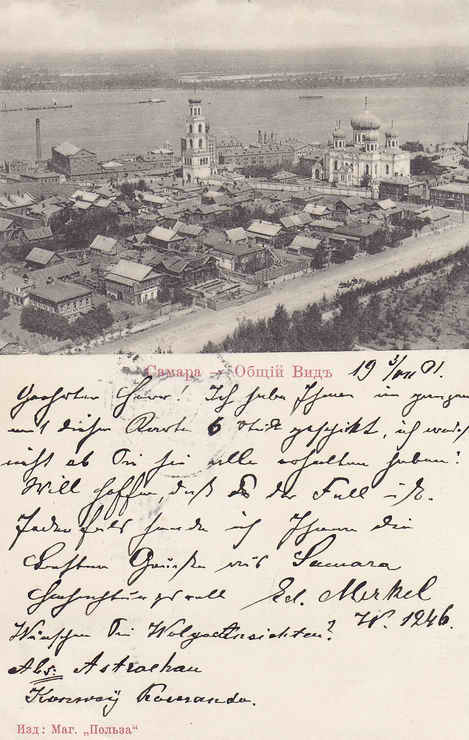 Самара — Общій Видъ.
19 3/VII 01.
Geehrter Herr! Ich habe Ihnen im ganzen
mit dieser Karte 6 Stück geschikt, ich weiß
nicht ob Sie sie alle erhalten haben?
Will hoffen, daß es der Fall ist.
Jedenfals sende ich Ihnen die
besten Grüße aus Samara
Hochachtungsvoll Ed. Merkel
W. 1246.
Wünschen Sie Wolgaansichten?
Abs: Astrachan
Konwoÿ Komando.
Изд: Маг. „Польза“